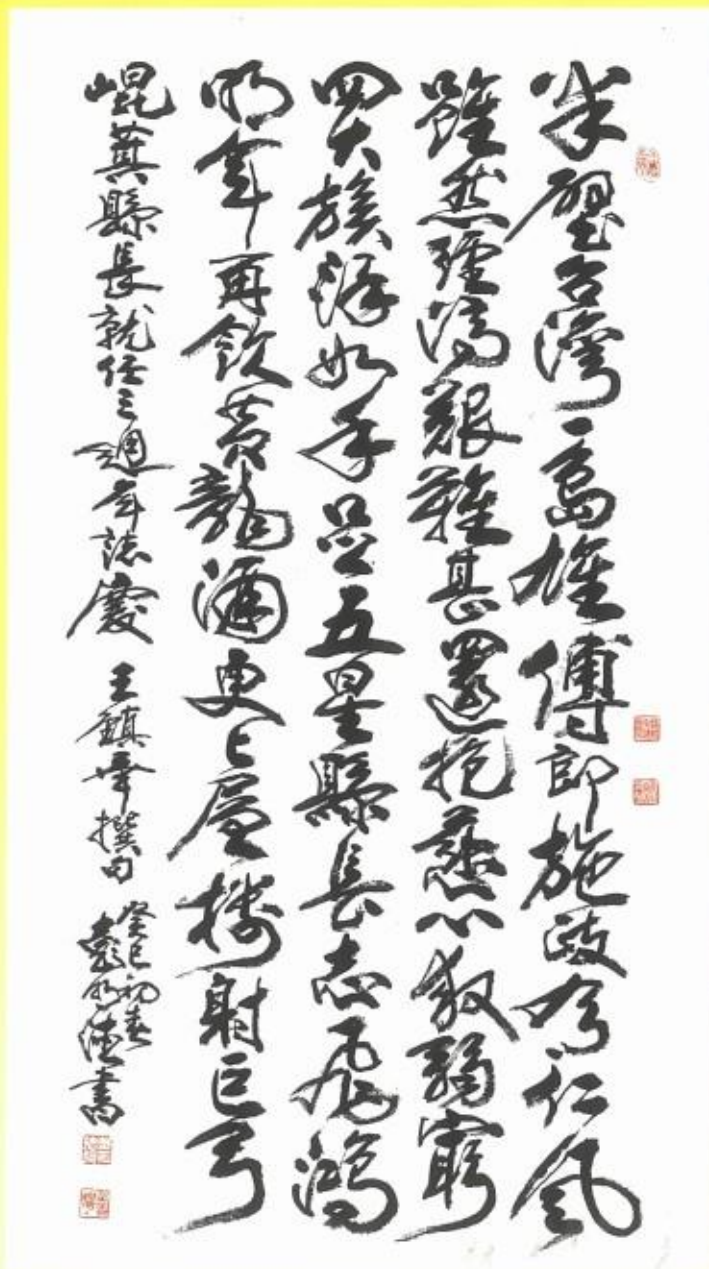 半壁台灣一島雄傅郎施政仁風
雖然經濟艱難甚還抱慈心救弱窮
四大族渾如手足五星縣長志飛鴻
明年再飲黃龍酒更上層樓射巨弓
崐萁縣長就任三週年誌慶 王鎮撰句
癸巳初春
書